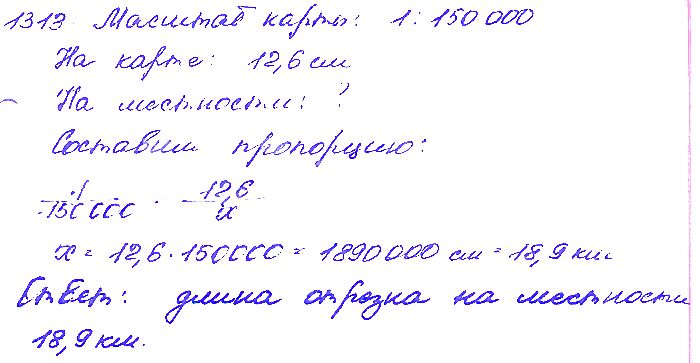 1313. Масштаб карты: 1 : 150 000
На карте: 12,6 см
На местности: ?
Составим пропорцию:
1/150000 = 12,6/x
x = 12,6 · 150000 = 1890000 см = 18,9 км
Ответ: длина отрезка на местности
18,9 км.